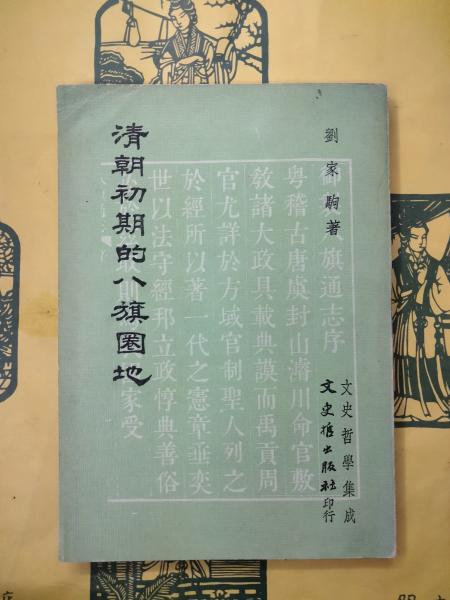 清朝初期的八旗圈地
劉家駒著
文史哲學集成
文史哲出版社印行
旗通志序
粵稽古唐虞封山濬川命官敷
教諸大政具載典謨而禹貢周
官尤詳於方域官制聖人列之
於經所以著一代之憲章垂奕
世以法守經邦立政惇典善俗
家受